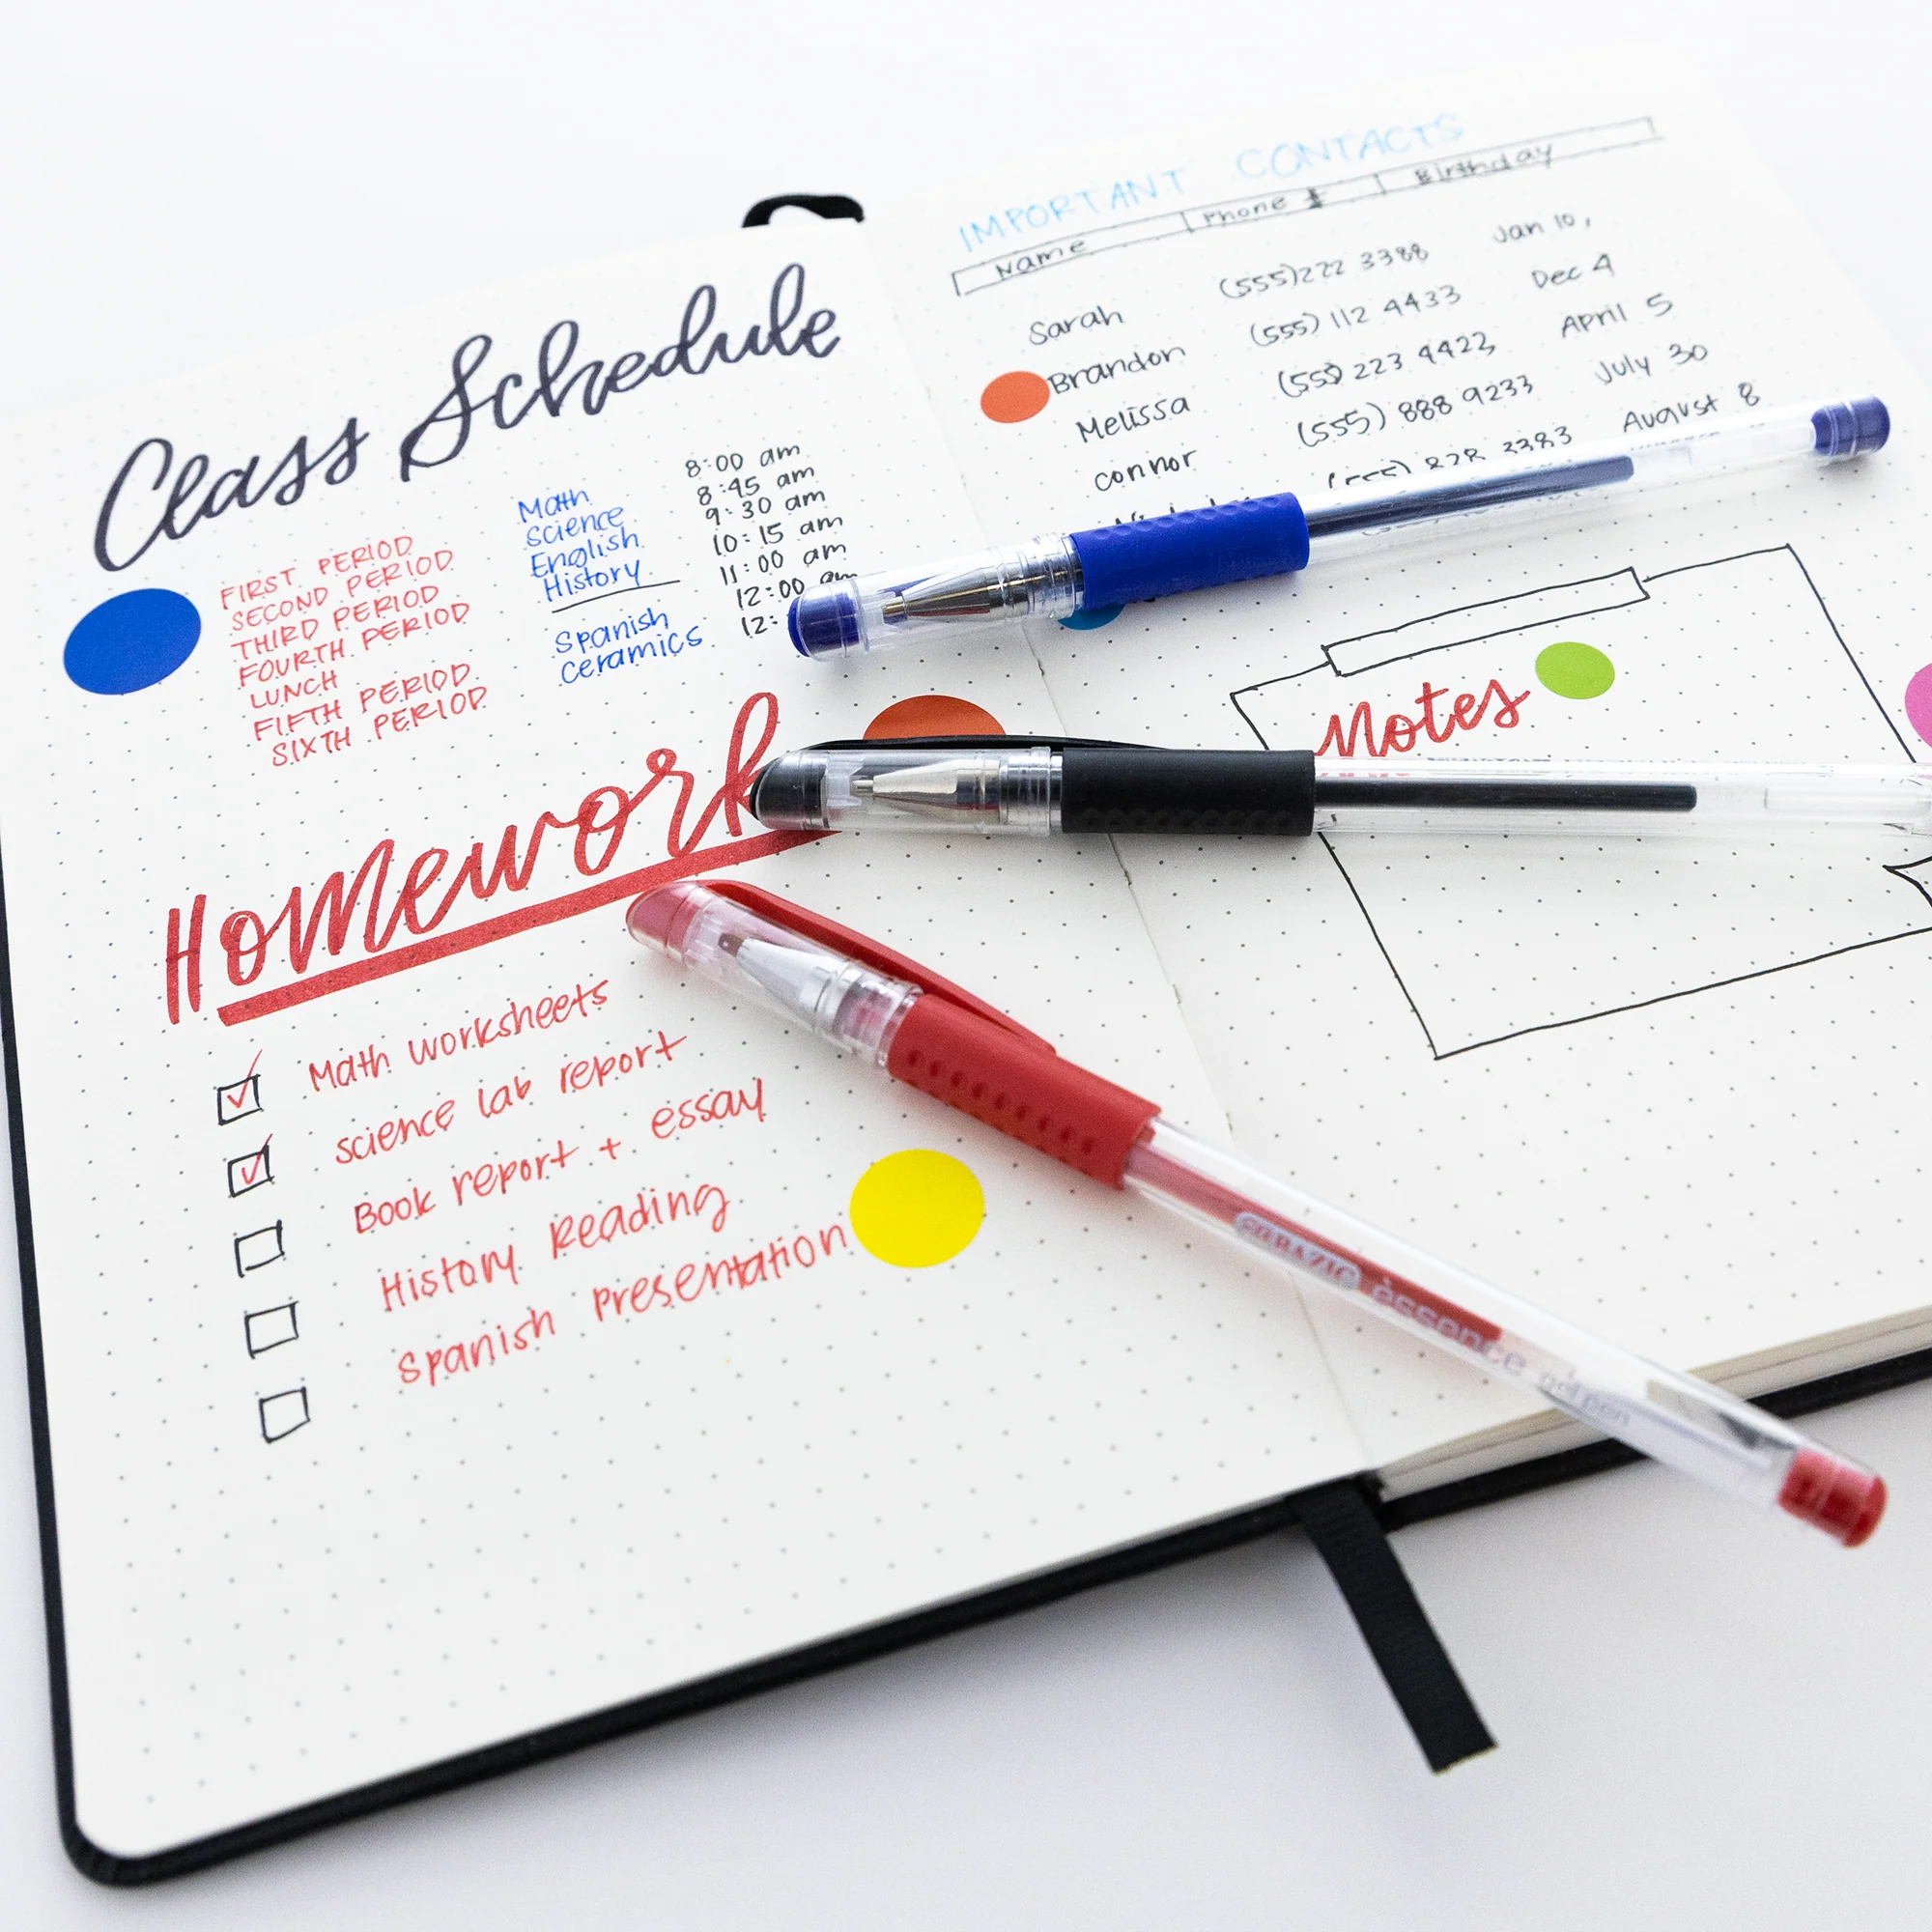 Class Schedule
FIRST PERIOD Math 8:00 am
SECOND PERIOD Science 8:45 am
THIRD PERIOD English 9:30 am
FOURTH PERIOD History 10:15 am
LUNCH 11:00 am
FIFTH PERIOD Spanish 12:00 am
SIXTH PERIOD ceramics 12:
Homework
Math worksheets
science lab report
Book report + essay
History Reading
Spanish Presentation
IMPORTANT CONTACTS
Name Phone # Birthday
Sarah (555)222 3388 Jan 10,
Brandon (555) 112 4433 Dec 4
Melissa (555) 223 4422 April 5
connor (555) 888 9233 July 30
(555) 828 3383 August 8
Notes
èssence gel pen